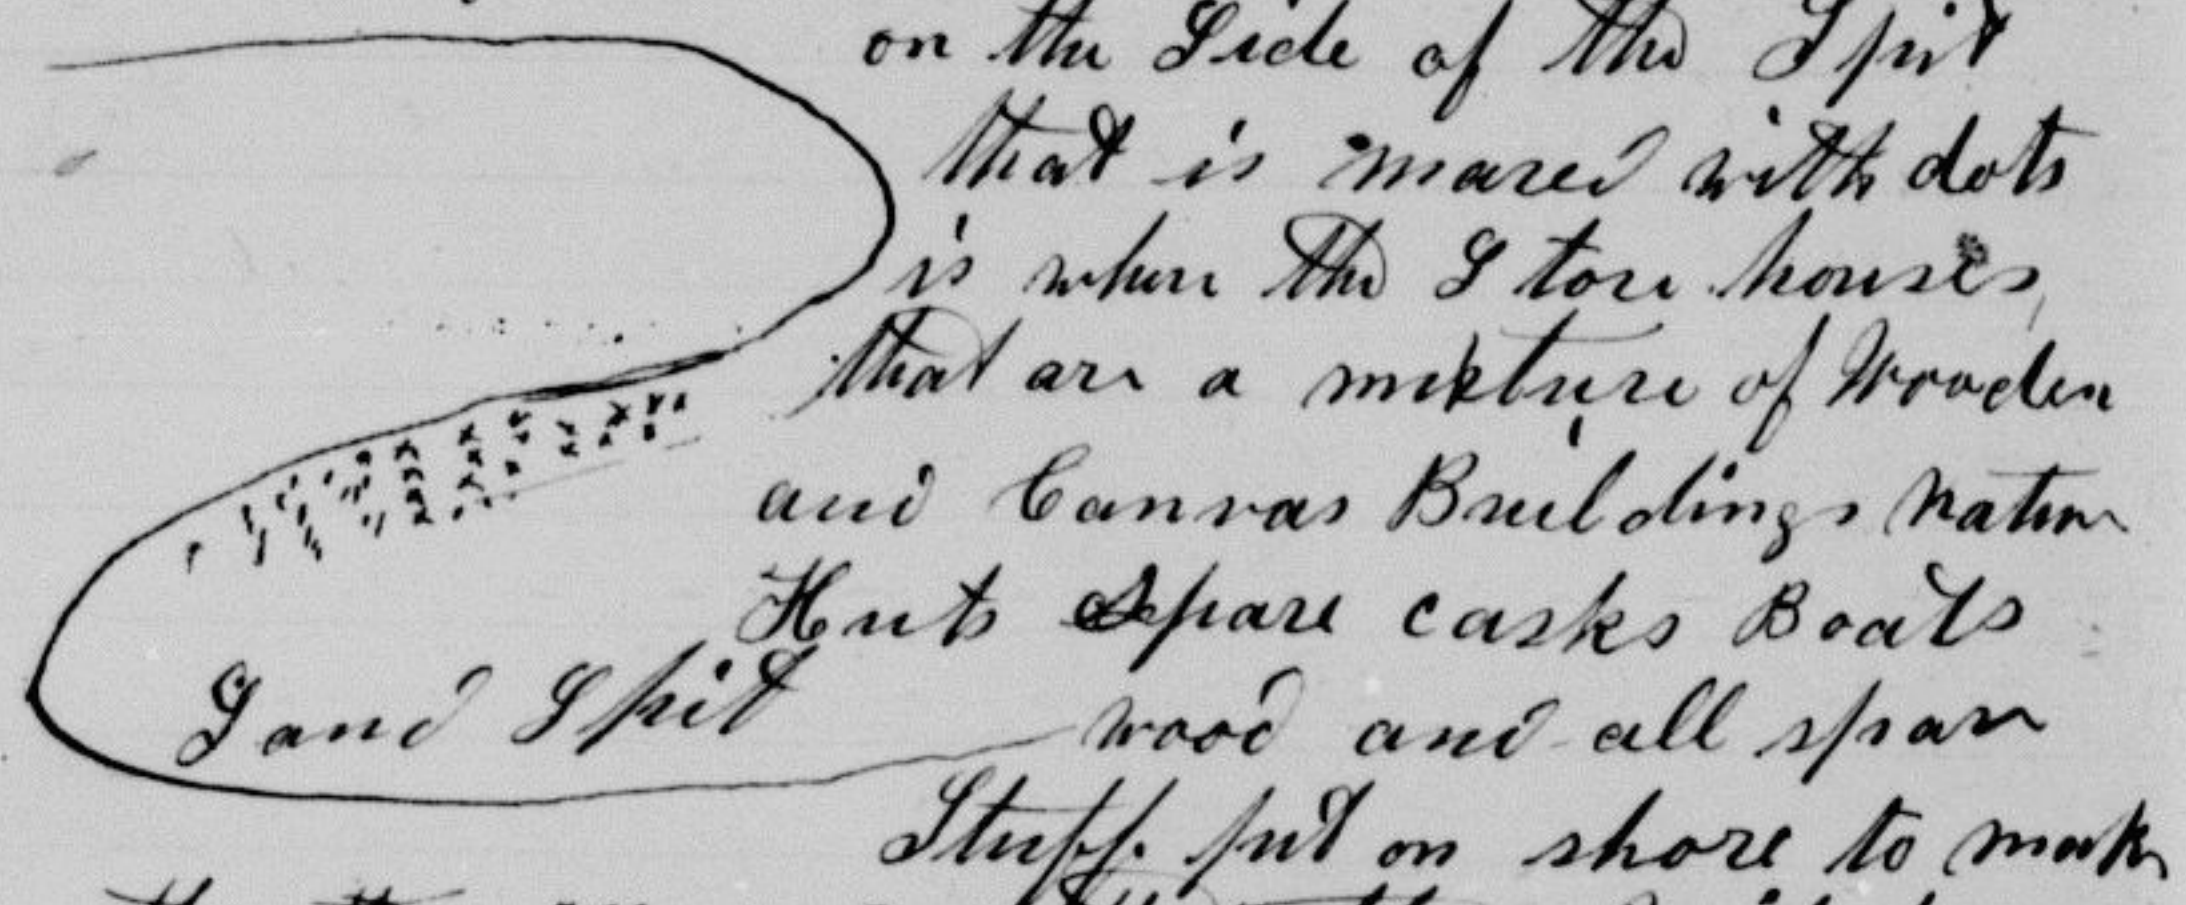 on the Side of the Spit
that is mared with dots
is where the Store houses
that are a mixture of Wooden
and Canvas Buildings native
Huts Spare casks Boats
Sand Spit
wood and all spare
Stuff put on shore to make